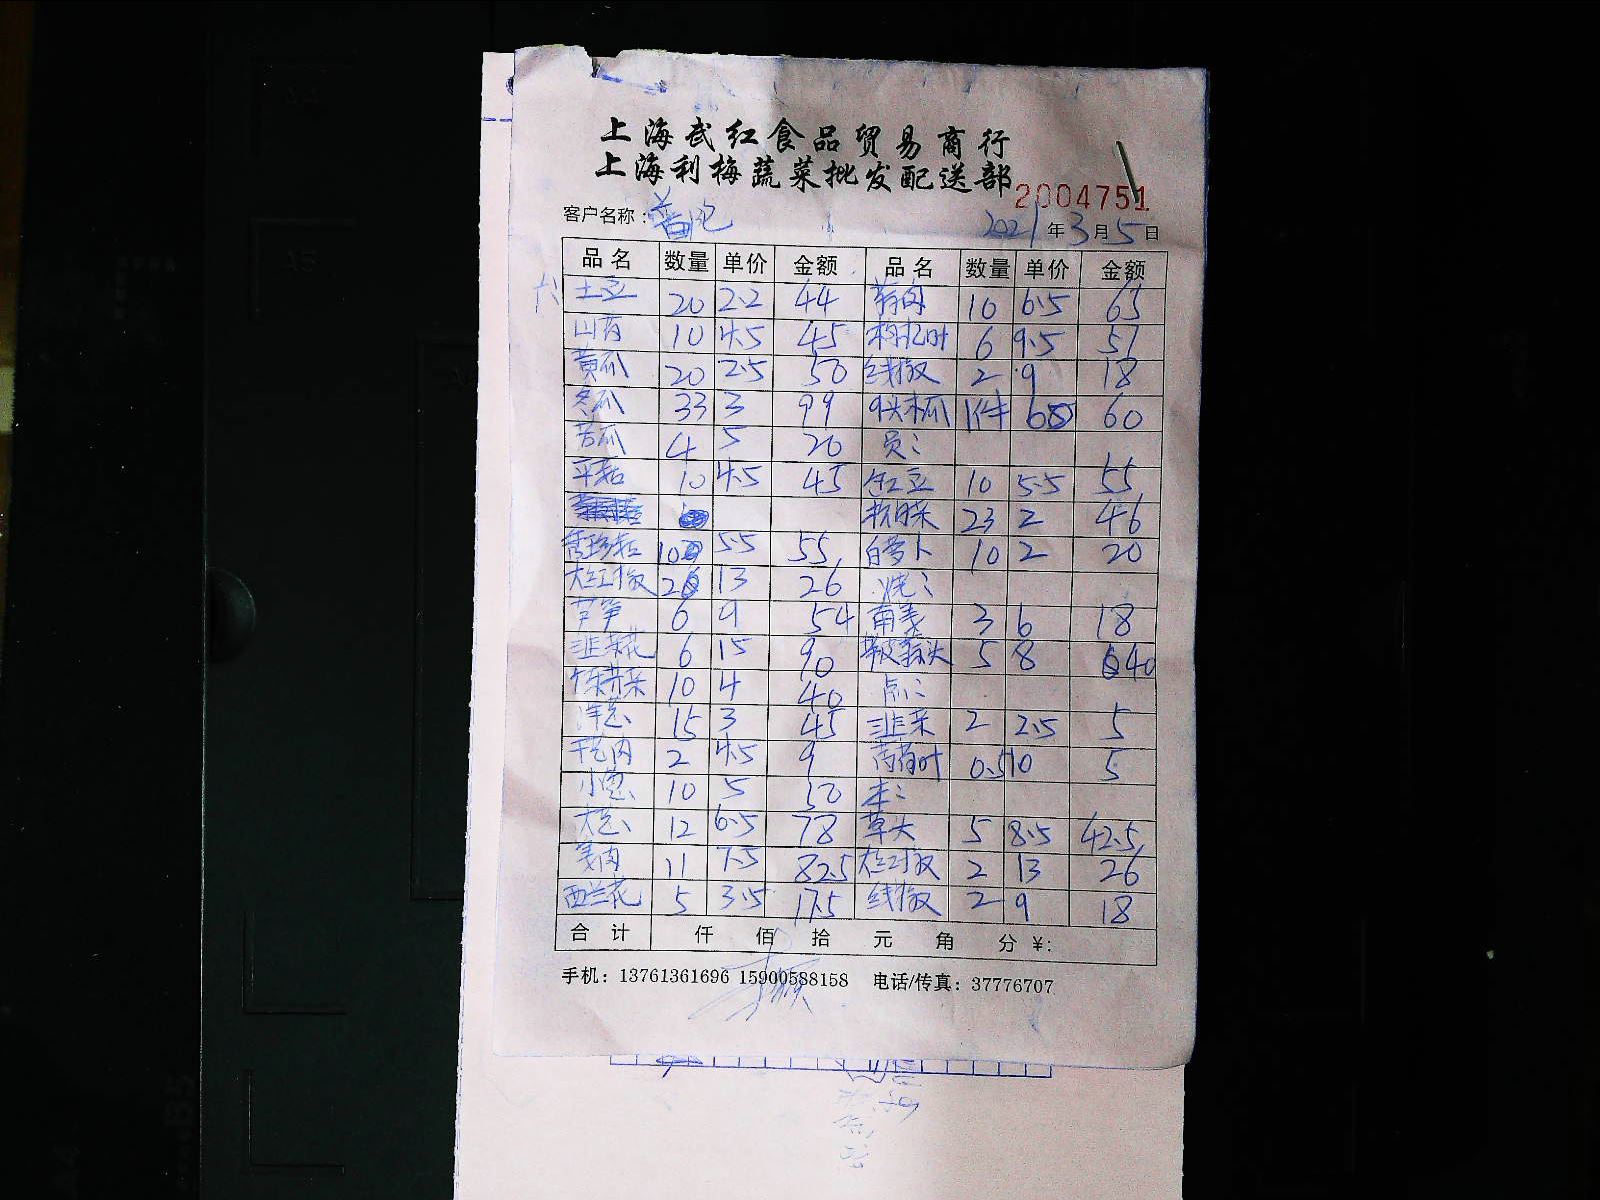 上海武红食品贸易商行
上海利梅蔬菜批发配送部
2004751
客户名称: 2021年3月5日
品名 数量 单价 金额 品名 数量 单价 金额
土豆 20 2.2 44 蒜肉 10 6.5 65
山药 10 4.5 45 枸杞叶 6 9.5 57
黄瓜 20 2.5 50 线椒 2 9 18
冬瓜 33 3 99 木瓜 1件 60 60
苦瓜 4 5 20 员:
平菇 10 4.5 45 10 5.5 55
23 2 46
秀珍菇 10 5.5 55 白萝卜 10 2 20
大红椒 2 13 26 烧:
芦笋 6 9 54 南姜 3 6 18
韭菜花 6 15 90 蒜头 5 8 40
10 4 40 点:
洋葱 15 3 45 韭菜 2 2.5 5
干葱肉 2 4.5 9 薄荷叶 0.5 10 5
小葱 10 5 50 本:
大葱 12 6.5 78 草头 5 8.5 42.5
姜肉 11 7.5 82.5 大红椒 2 13 26
西兰花 5 3.5 17.5 线椒 2 9 18
合计 仟 佰 拾 元 角 分 ¥:
手机: 13761361696 15900588158 电话/传真: 37776707